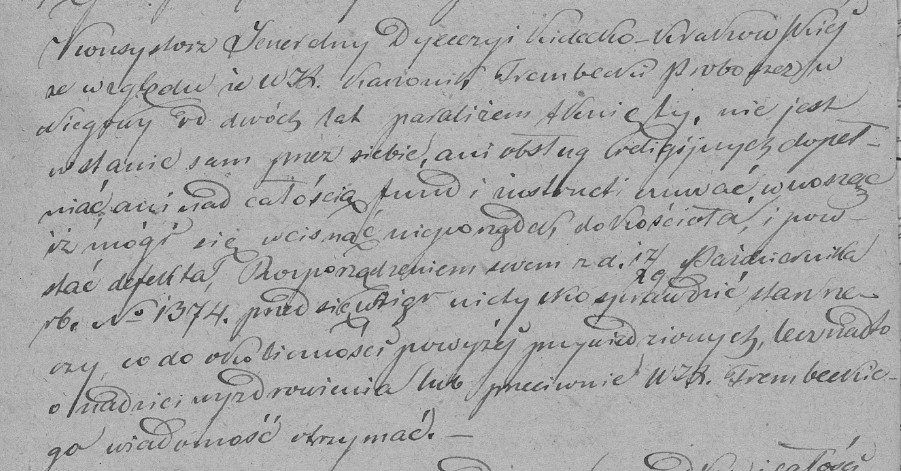 Konsystorz Jeneralny Dyecezyi Kielecko-Krakowskiej
ze względu że WX. Kanonik Trembecki Proboszcz w
Niegowy od dwóch lat paraliżem tknięty, nie jest
w stanie sam przez siebie, ani obsług Religijnych dopeł-
niać, ani nad całością fund i instructi czuwać, wnosząc
iż mógł się wcisnąć nieporządek do kościoła, i pow-
stać defekta, Rozporządzeniem swem z d. 17/29 Października
rb. No 1374. przedsięwziął nietylko sprawdzić stan rze-
czy, co do okoliczności powyżej przywiedzionych, lecz nadto
o nadziei wyzdrowienia lub przeciwnie WX. Trembeckie-
go wiadomość otrzymać. —